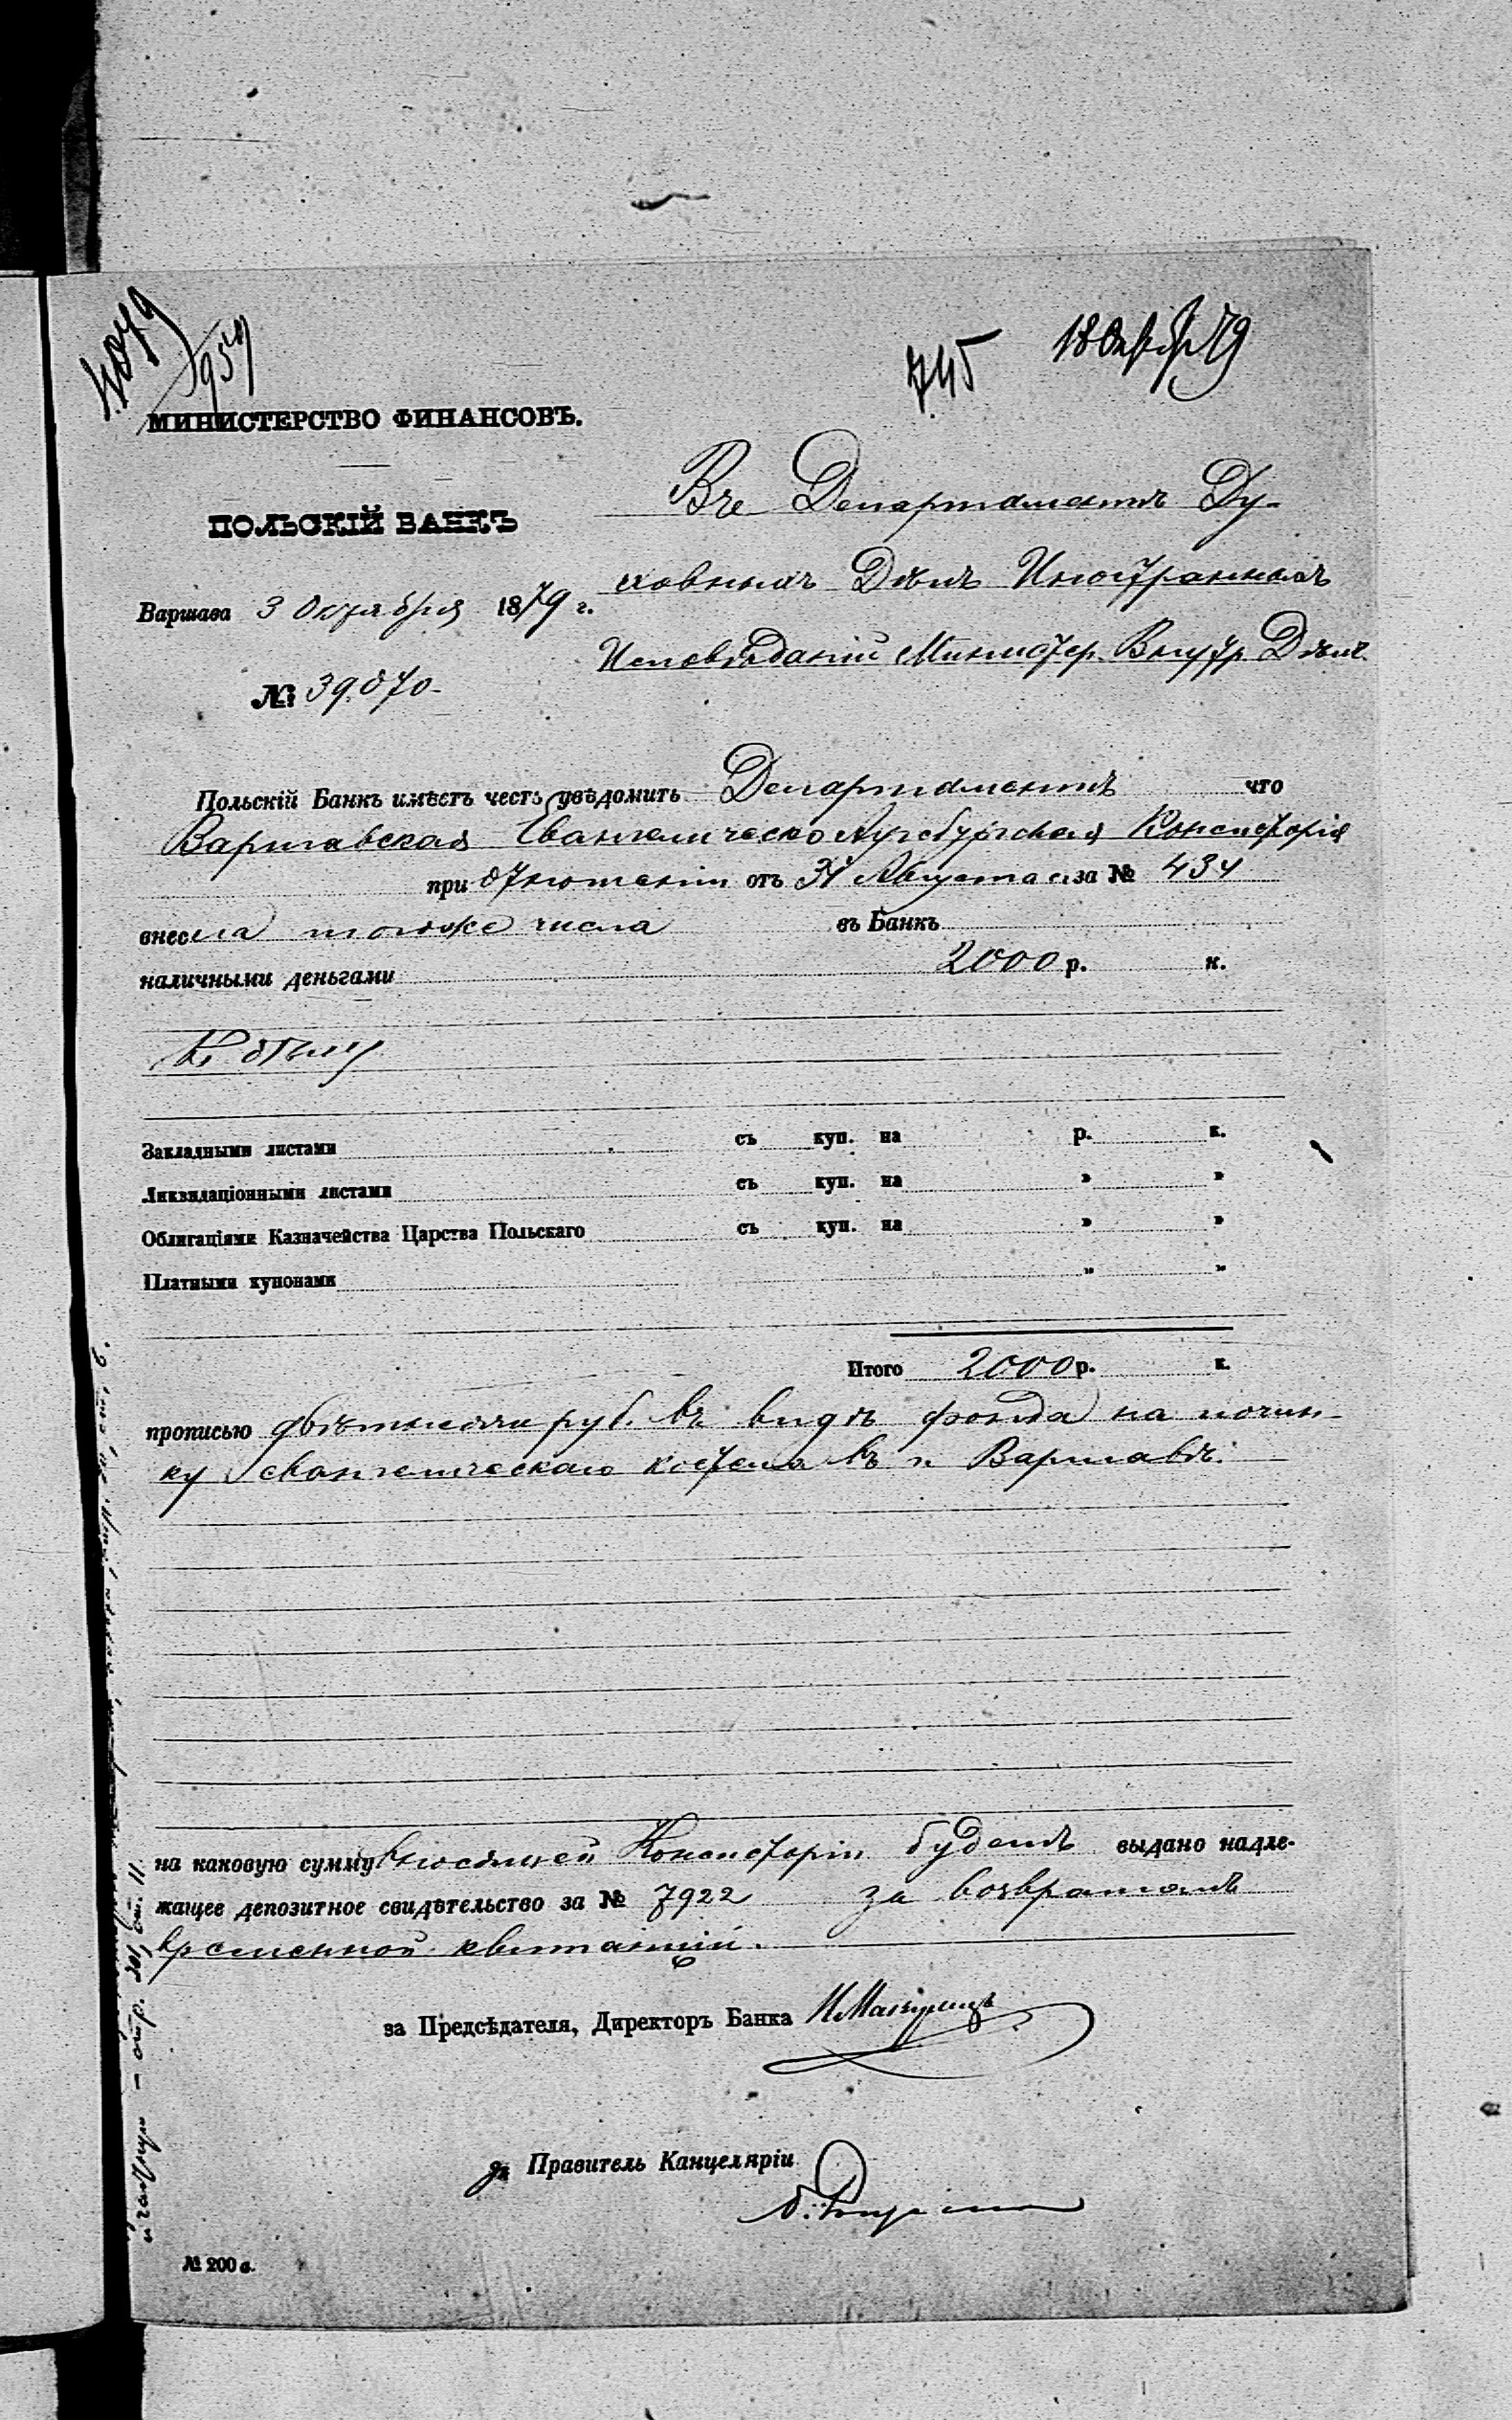 4079
745
18 Октября 79
МИНИСТЕРСТВО ФИНАНСОВЪ.
ПОЛЬСКІЙ БАНКЪ
Варшава 3 Октября 1879 г.
№ 39070
Въ Департаментъ Ду-
ховныхъ Дѣлъ Иностранныхъ
Исповѣданій Министер. Внутр. Дѣлъ.
Польскій Банкъ имѣетъ честь увѣдомить Департаментъ что
Варшавская Евангелическо Аугсбургская Консисторія
при отношеніи отъ Августа с. г. за № 434
внесла того же числа въ Банкъ
наличными деньгами 2000 р. к.
Къ дѣлу
Закладными листами съ куп. на р. к.
Ликвидаціонными листами съ куп. на „ „
Облигаціями Казначейства Царства Польскаго съ куп. на „ „
Платными купонами „ „
Итого 2000 р. к.
прописью двѣ тысячи руб. въ видѣ фонда на почин-
ку евангелическаго костела въ г. Варшавѣ.
на каковую сумму вносящей Консисторіи будетъ выдано надле-
жащее депозитное свидѣтельство за № 7922 за возвратомъ
временной квитанціи.
за Предсѣдателя, Директоръ Банка
Правитель Канцеляріи
№ 200 а.